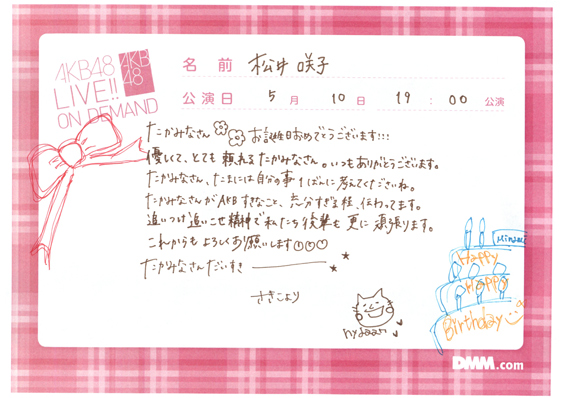 AKB48
LIVE!!
ON DEMAND
AKB
48
名前 松井 咲子
公演日 5月 10日 19:00 公演
たかみなさん お誕生日おめでとうございます!!!
優しくて、とても頼れるたかみなさん。いつもありがとうございます。
たかみなさん、たまには自分の事1ばんに考えてくださいね。
たかみなさんがAKBすきなこと、充分すぎる程、伝わってます。
追いつけ追いこせ精神で私たち後輩も更に頑張ります。
これからもよろしくお願いします
たかみなさんだいすき
さきこより
Minami
Happy
Happy
Birthday
DMM.com